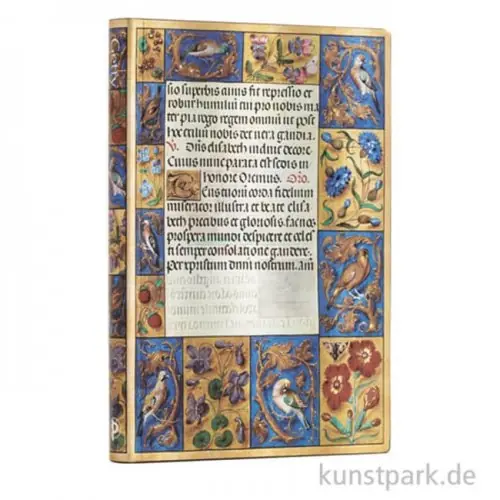 sio superbis cuius fit repressio et
robur humiliū tu pro nobis ma
ter pia rogo regem omniū ut post
hoc exiliū nobis det vera gaudia.
V. Dns elisabeth indvit decore
Cuius nunc parata est sedis in
honore Oremus. Oro.
Tuorū corda fidelium
miserator illustra et beate elisa
beth precibus et gloriosis. fac nos
prospera mundi despicere et celes
ti semper consolatione gaudere.
Per xpristum dnm nostrum. am
kunstpark.de